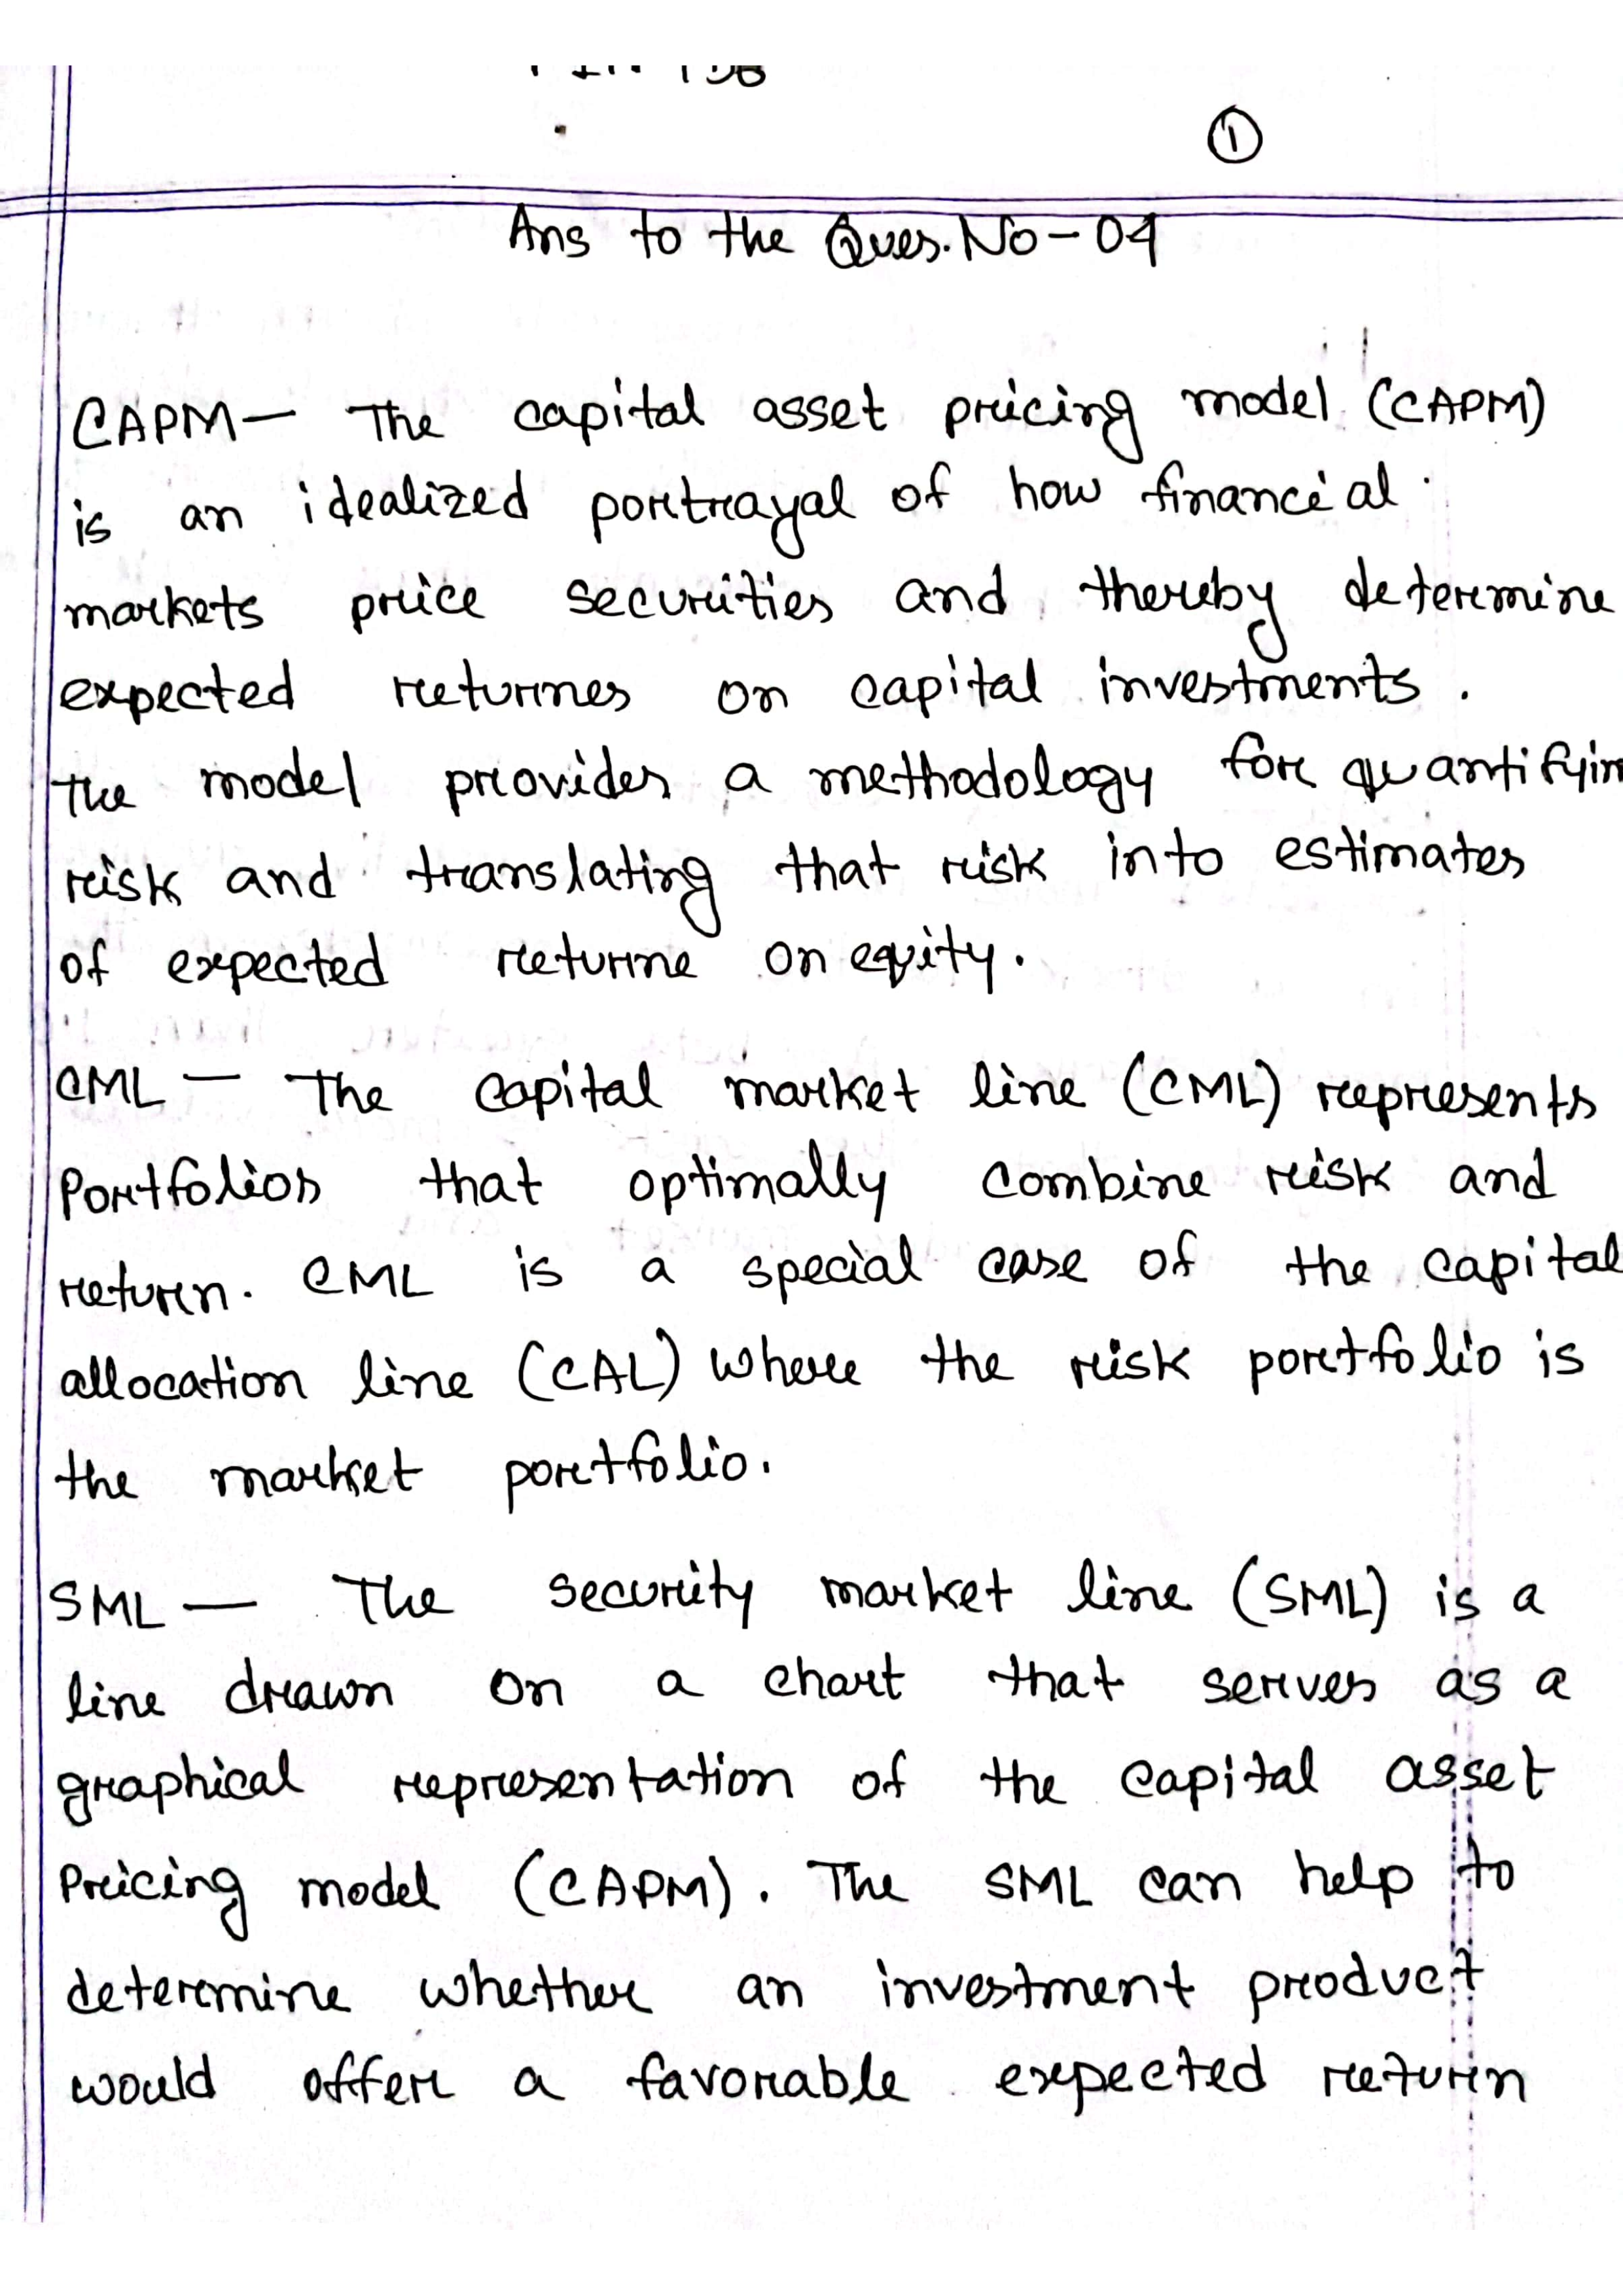 ①
Ans to the Ques. No - 04
CAPM — The capital asset pricing model (CAPM)
is an idealized portrayal of how financial
markets price securities and thereby determine
expected returnes on capital investments.
The model provides a methodology for quantifyin
risk and translating that risk into estimates
of expected returne on equity.
CML — The capital market line (CML) represents
Portfolios that optimally combine risk and
return. CML is a special case of the capital
allocation line (CAL) where the risk portfolio is
the market portfolio.
SML — The security market line (SML) is a
line drawn on a chart that serves as a
graphical representation of the capital asset
Pricing model (CAPM). The SML can help to
determine whether an investment product
would offer a favorable expected return